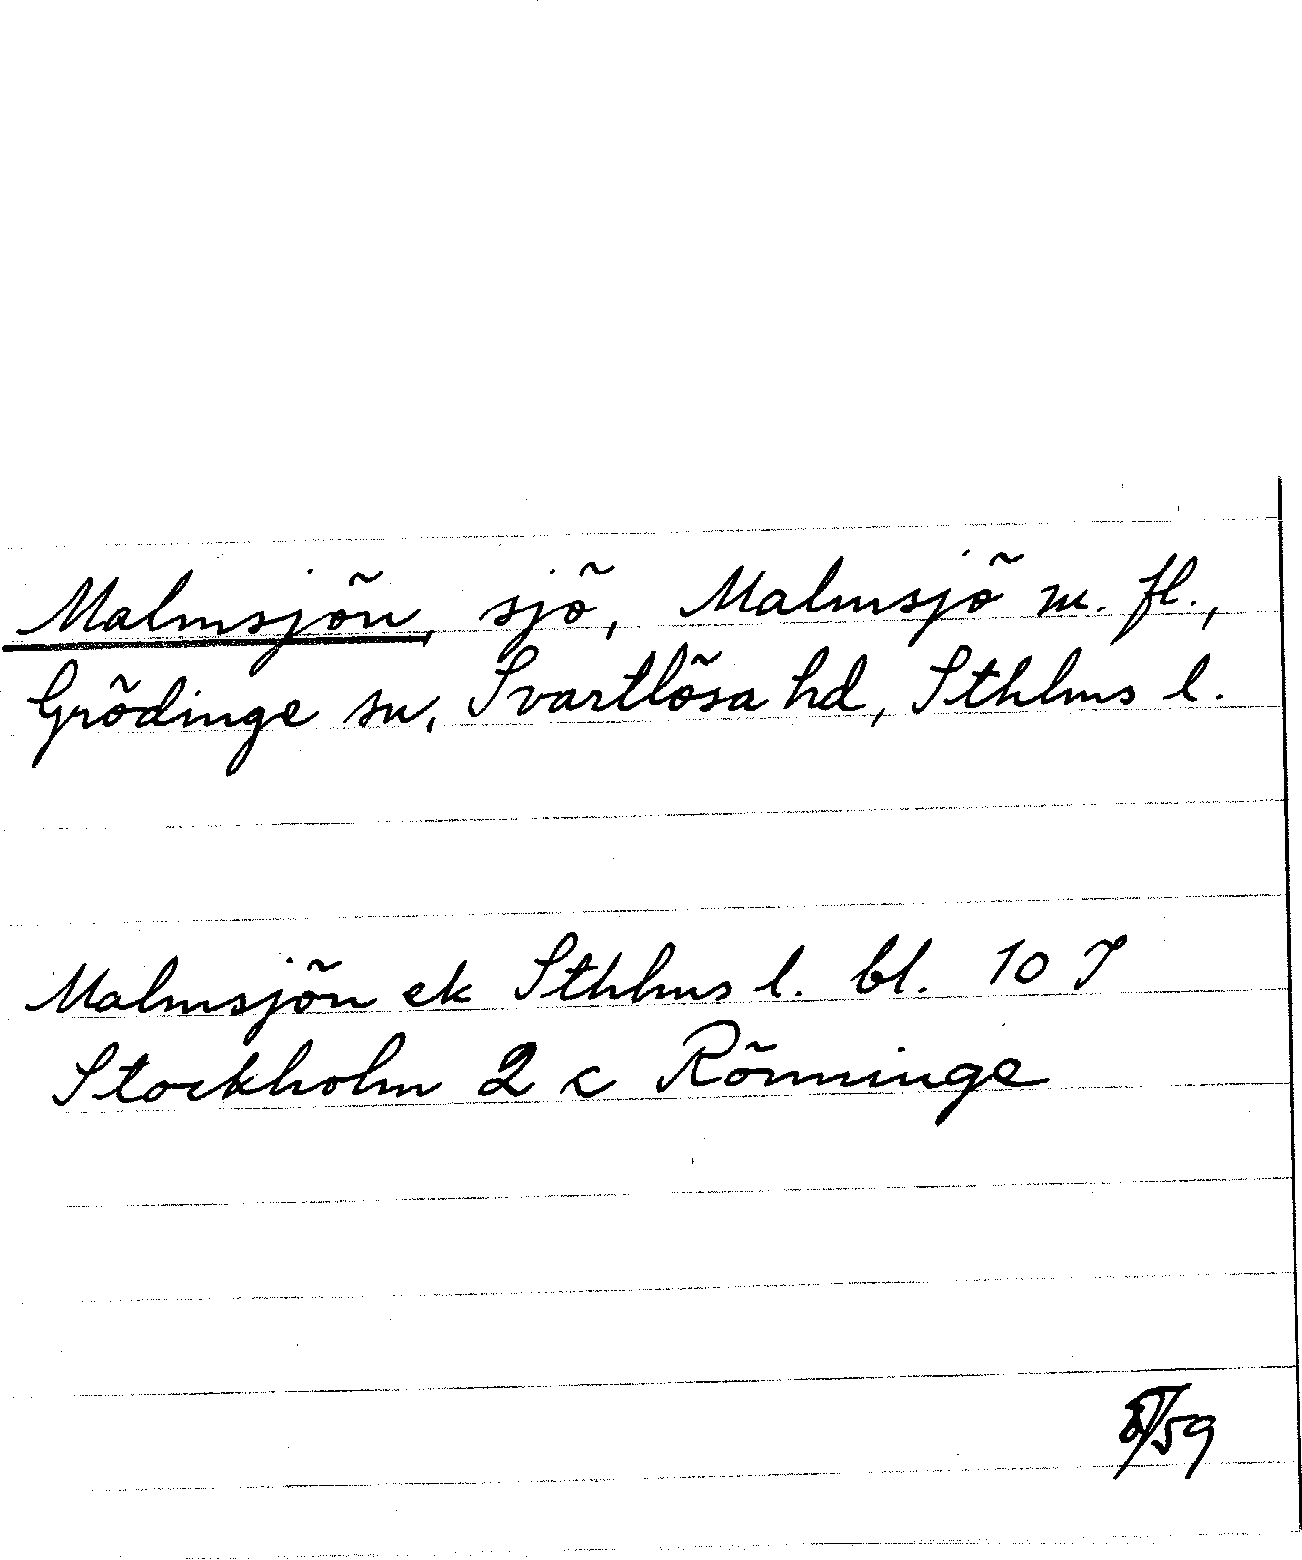 Malmsjön, sjö, Malmsjö m. fl.,
Grödinge sn, Svartlösa hd, Sthlms l.
Malmsjön ek Sthlms l. bl. 10 I
Stockholm 2 c Rönninge
/59